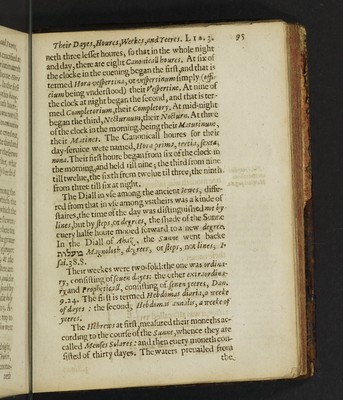 Their Dayes, Houres, Weekes, and Yeeres. LIB. 3. 95
neth three lesser houres, so that in the whole night
and day, there are eight Canonicall houres. At six of
the clocke in the euening began the first, and that is
termed Hora vespertina, or vespertinum simply (offi-
cium being vnderstood) their Vespertine. At nine of
the clock at night began the second, and that is ter-
med Completorium, their Completory. At mid-night
began the third, Nocturnum, their Nocturn. At three
of the clock in the morning, being their Matutinum,
their Matines. The Canonicall houres for their
day-seruice were named, Hora prima, tertia, sexta,
nona. Their first houre began from six of the clock in
the morning, and held till nine; the third from nine
till twelue, the sixth from twelue til three, the ninth
from three till six at night.
The Diall in vse among the ancient Iewes, diffe-
red from that in vse among vs: theirs was a kinde of
staires, the time of the day was distinguished, not by
lines, but by steps, or degrees, the shade of the Sunne
euery halfe houre moued forward to a new degree.
In the Diall of Ahaz, the Sunne went backe
מעלות Magnoloth, degrees, or steps, not lines, I-
sai. 38. 8.
Their weekes were two-fold: the one was ordina-
ry, consisting of seuen dayes: the other extraordina-
ry and Propheticall, consisting of seuen yeeres, Dan.
9. 24. The first is termed Hebdomas diaria, a weeke
of dayes: the second, Hebdomas annalis, a weeke of
yeeres.
The Hebrews at first, measured their moneths ac-
cording to the course of the Sunne, whence they are
called Menses Solares: and then euery moneth con-
sisted of thirty dayes. The waters preuailed from
the